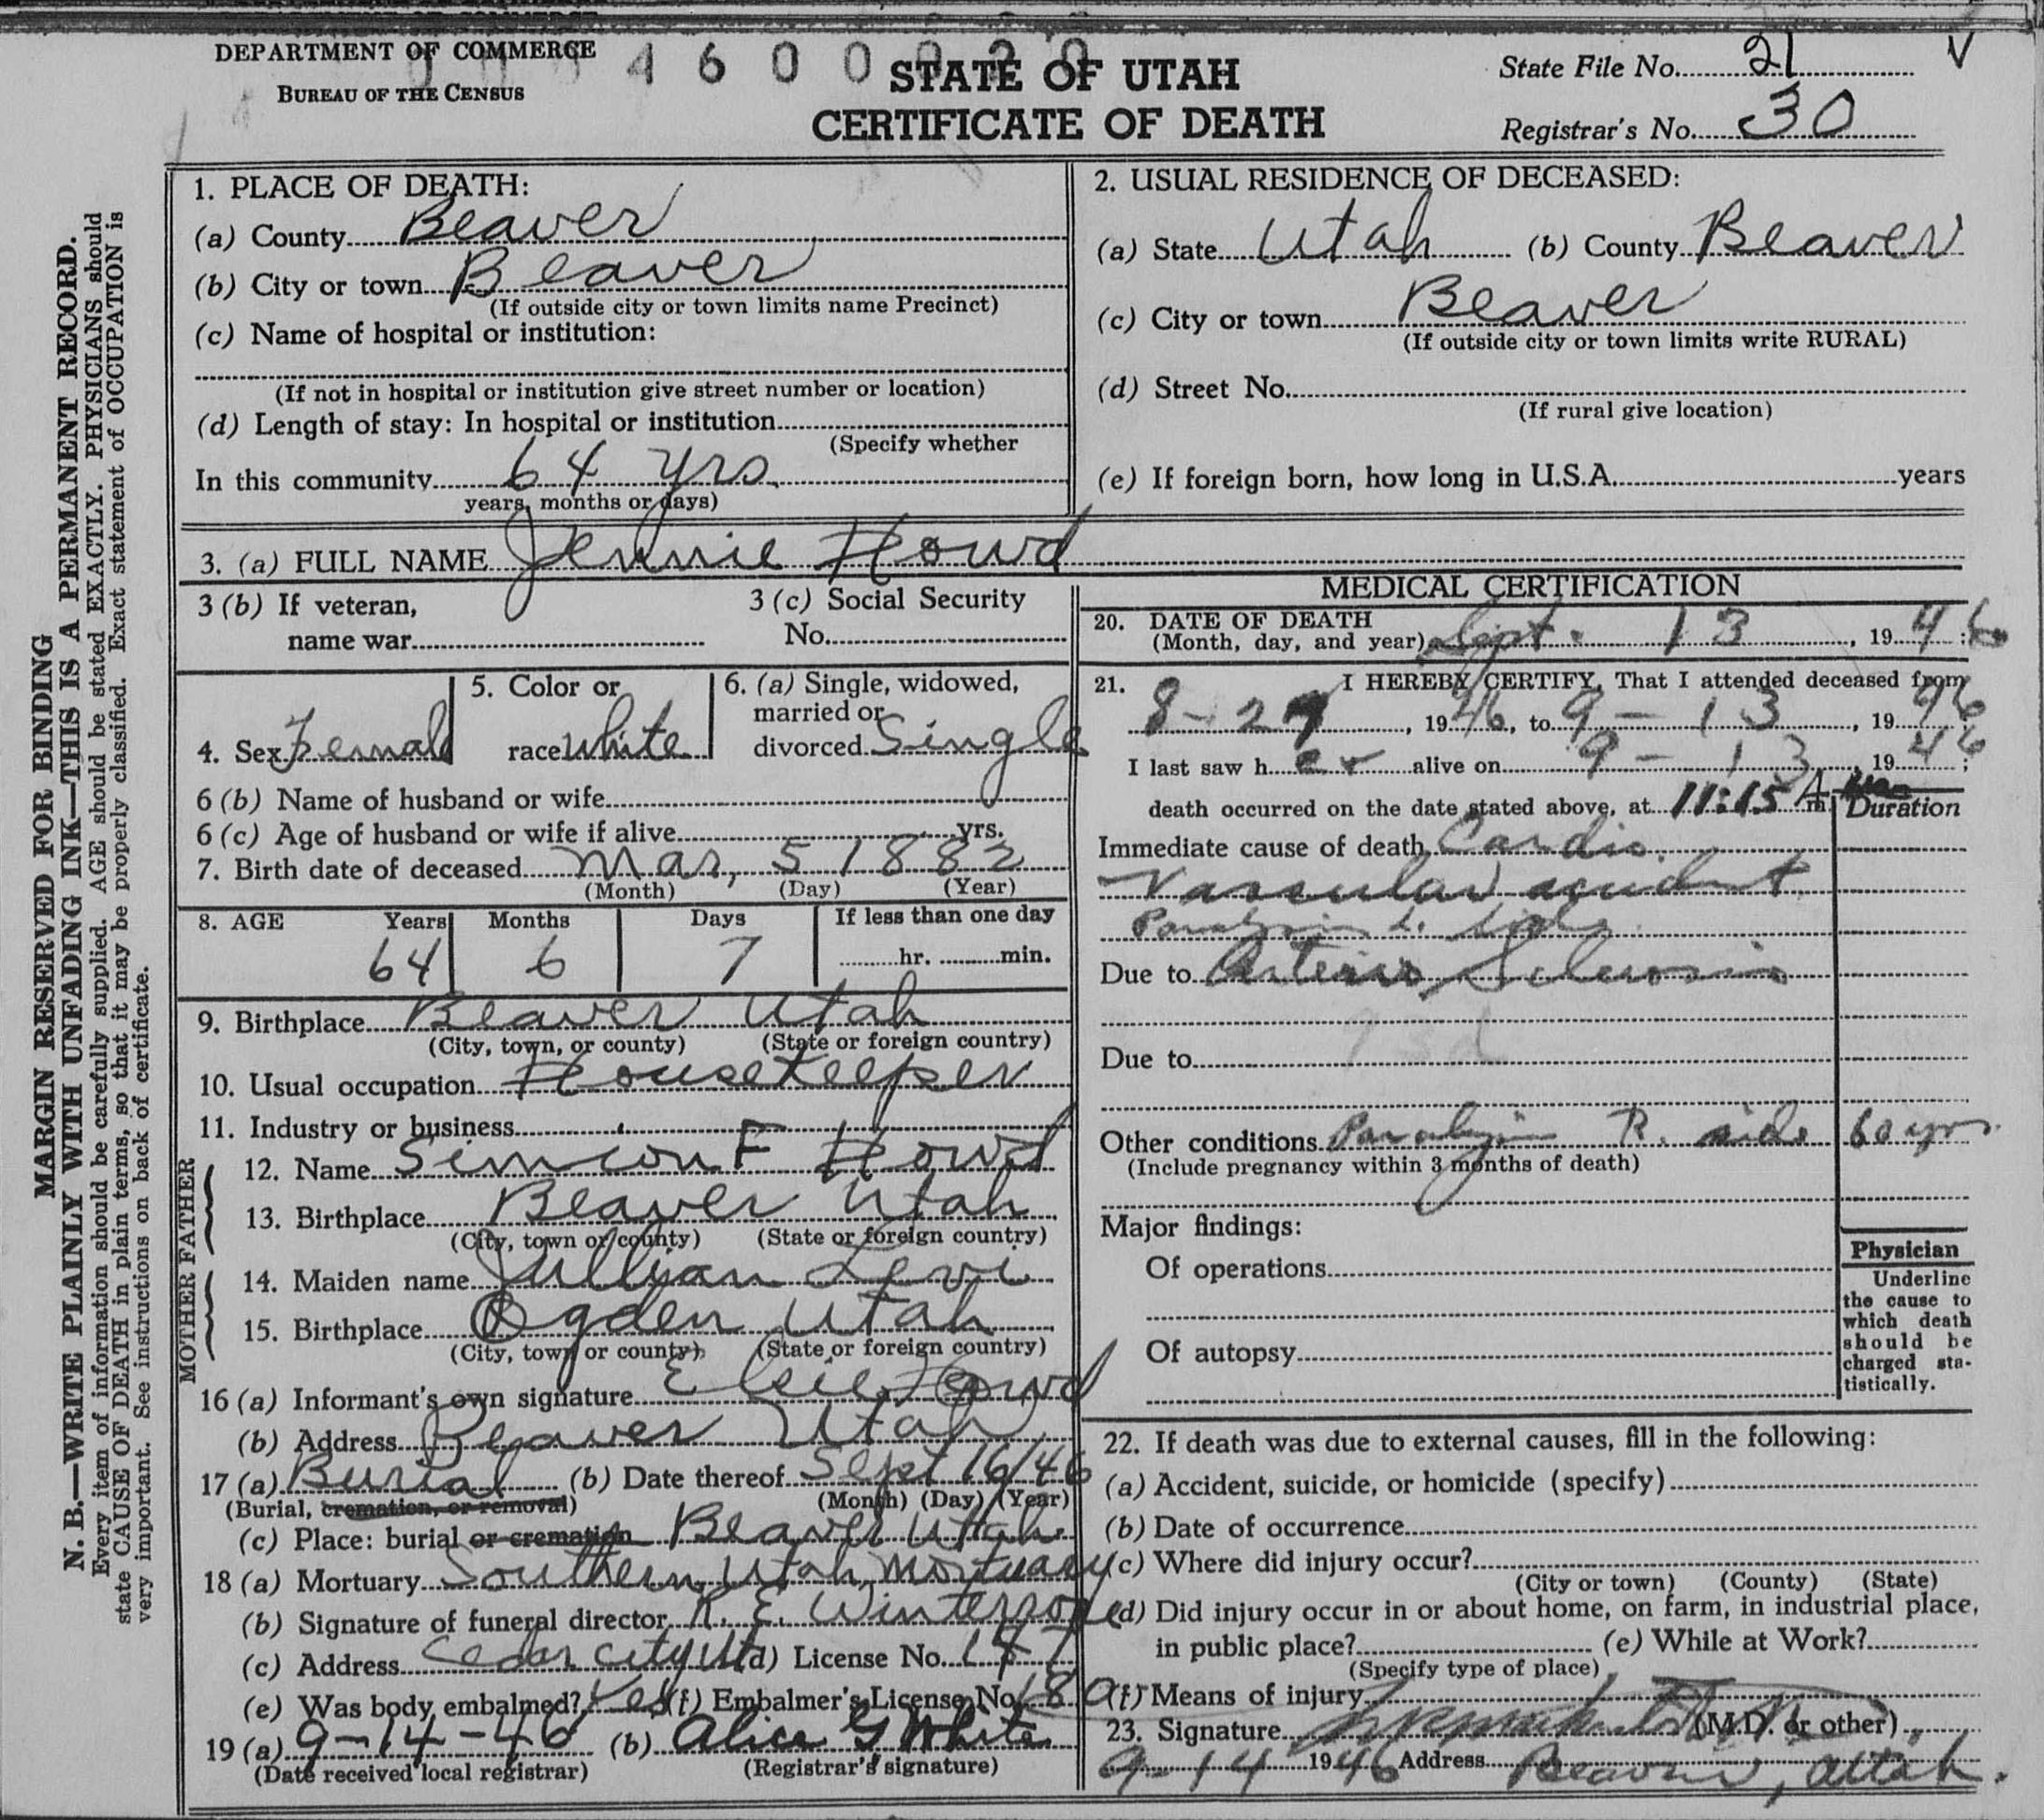 DEPARTMENT OF COMMERCE
BUREAU OF THE CENSUS
4 6 0 0
STATE OF UTAH
CERTIFICATE OF DEATH
State File No. 21 V
Registrar's No. 30
MARGIN RESERVED FOR BINDING
N. B.—WRITE PLAINLY WITH UNFADING INK—THIS IS A PERMANENT RECORD.
Every item of information should be carefully supplied. AGE should be stated EXACTLY. PHYSICIANS should
state CAUSE OF DEATH in plain terms, so that it may be properly classified. Exact statement of OCCUPATION is
very important. See instructions on back of certificate.
1. PLACE OF DEATH:
(a) County Beaver
(b) City or town Beaver
(If outside city or town limits name Precinct)
(c) Name of hospital or institution:
(If not in hospital or institution give street number or location)
(d) Length of stay: In hospital or institution
(Specify whether
In this community 64 yrs.
years, months or days)
2. USUAL RESIDENCE OF DECEASED:
(a) State Utah (b) County Beaver
(c) City or town Beaver
(If outside city or town limits write RURAL)
(d) Street No.
(If rural give location)
(e) If foreign born, how long in U.S.A. years
3. (a) FULL NAME Jennie Howd
3 (b) If veteran,
name war
3 (c) Social Security
No.
4. Sex Female
5. Color or
race White
6. (a) Single, widowed,
married or
divorced Single
6 (b) Name of husband or wife
6 (c) Age of husband or wife if alive yrs.
7. Birth date of deceased Mar, 5 1882
(Month) (Day) (Year)
8. AGE Years Months Days If less than one day
64 6 7 hr. min.
9. Birthplace Beaver Utah
(City, town, or county) (State or foreign country)
10. Usual occupation Housekeeper
11. Industry or business
FATHER
12. Name Simeon F Howd
13. Birthplace Beaver Utah
(City, town or county) (State or foreign country)
MOTHER
14. Maiden name Jullian Levi
15. Birthplace Ogden Utah
(City, town or county) (State or foreign country)
16 (a) Informant's own signature Elsie Howd
(b) Address Beaver Utah
17 (a) Burial (b) Date thereof Sept 16/46
(Burial, cremation, or removal) (Month) (Day) (Year)
(c) Place: burial or cremation Beaver Utah
18 (a) Mortuary Southern Utah Mortuary
(b) Signature of funeral director R. E. Winterrose
(c) Address Cedar City Ut (d) License No. 187
(e) Was body embalmed? Yes (f) Embalmer's License No. 180
19 (a) 9-14-46 (b) Alice G White
(Date received local registrar) (Registrar's signature)
MEDICAL CERTIFICATION
20. DATE OF DEATH
(Month, day, and year) Sept. 13, 1946
21. I HEREBY CERTIFY, That I attended deceased from
8-29, 1946, to 9-13, 1946
I last saw h er alive on 9-13, 1946;
death occurred on the date stated above, at 11:15 A m.
Duration
Immediate cause of death Cardio.
Vascular accident
Paralysis L. side
Due to Arterio Sclerosis
Due to
Other conditions Paralysis R. side 60 yrs.
(Include pregnancy within 3 months of death)
Major findings:
Of operations
Of autopsy
Physician
Underline
the cause to
which death
should be
charged sta-
tistically.
22. If death was due to external causes, fill in the following:
(a) Accident, suicide, or homicide (specify)
(b) Date of occurrence
(c) Where did injury occur?
(City or town) (County) (State)
(d) Did injury occur in or about home, on farm, in industrial place,
in public place? (e) While at Work?
(Specify type of place)
(f) Means of injury
23. Signature (M.D. or other)
9-14 1946 Address Beaver, Utah.